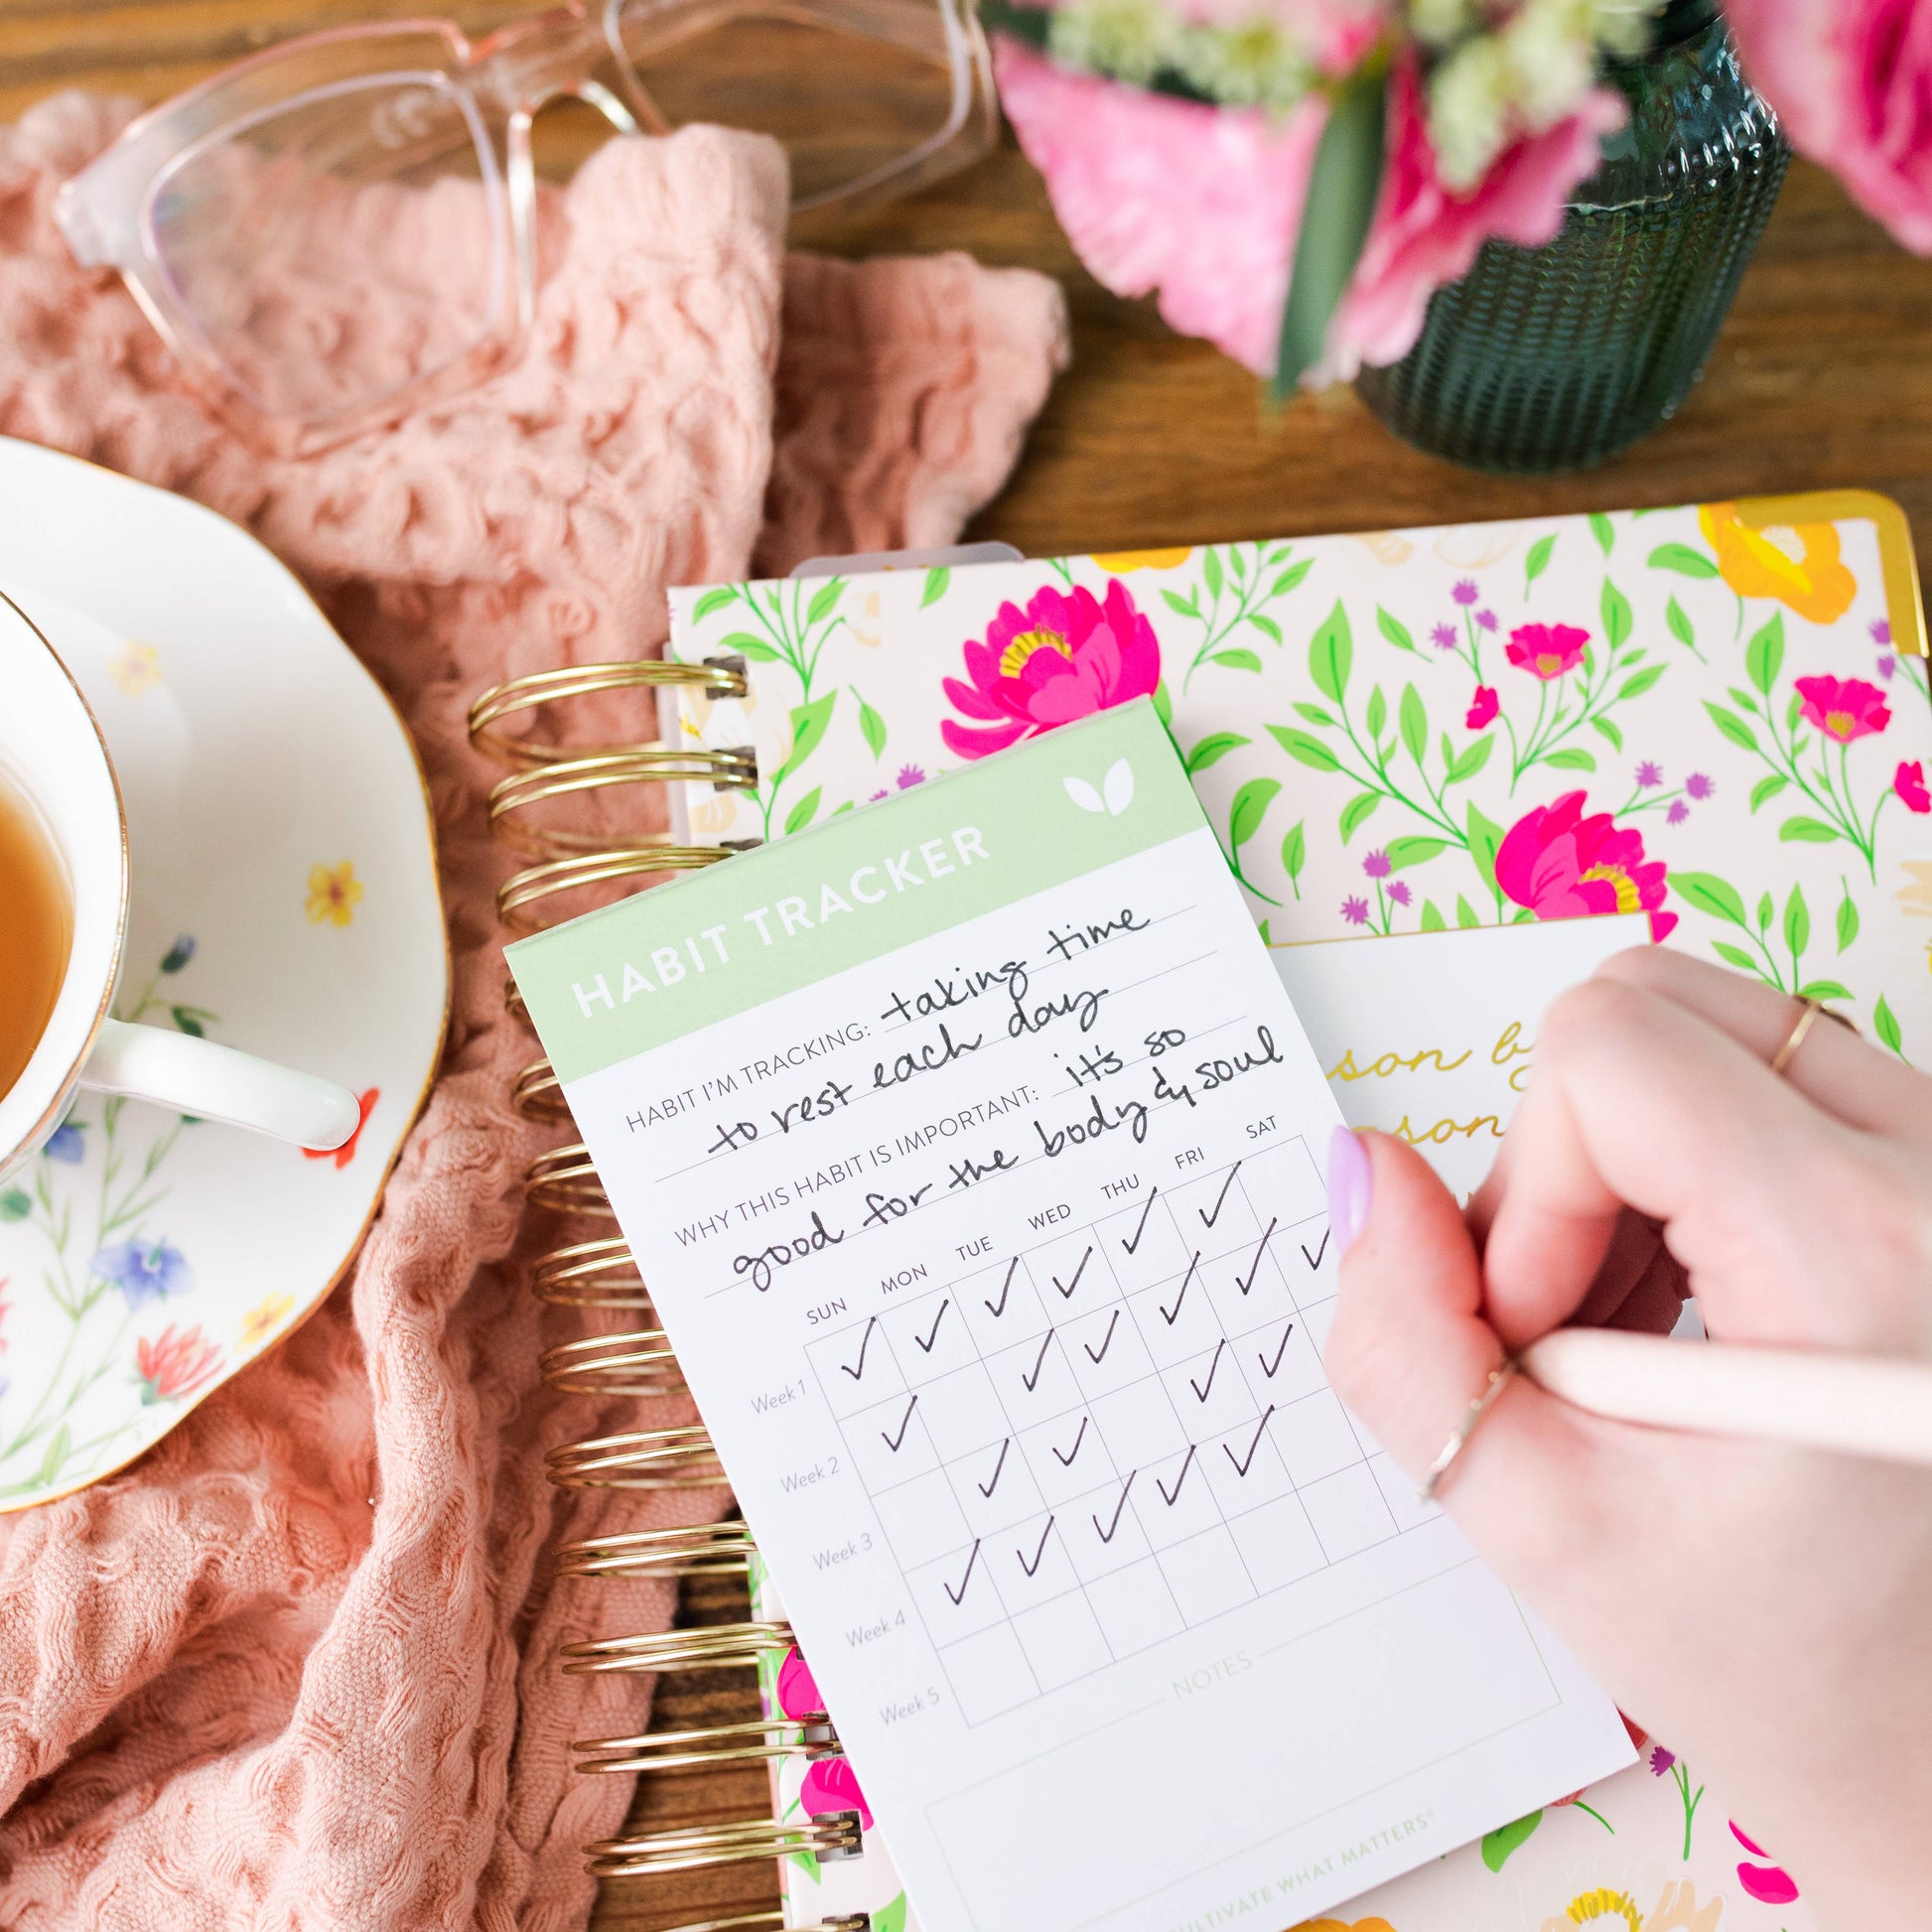 HABIT TRACKER
HABIT I'M TRACKING: taking time
to rest each day
WHY THIS HABIT IS IMPORTANT: it's so
good for the body & soul
SUN MON TUE WED THU FRI SAT
Week 1
Week 2
Week 3
Week 4
Week 5
NOTES
WHAT MATTERS®